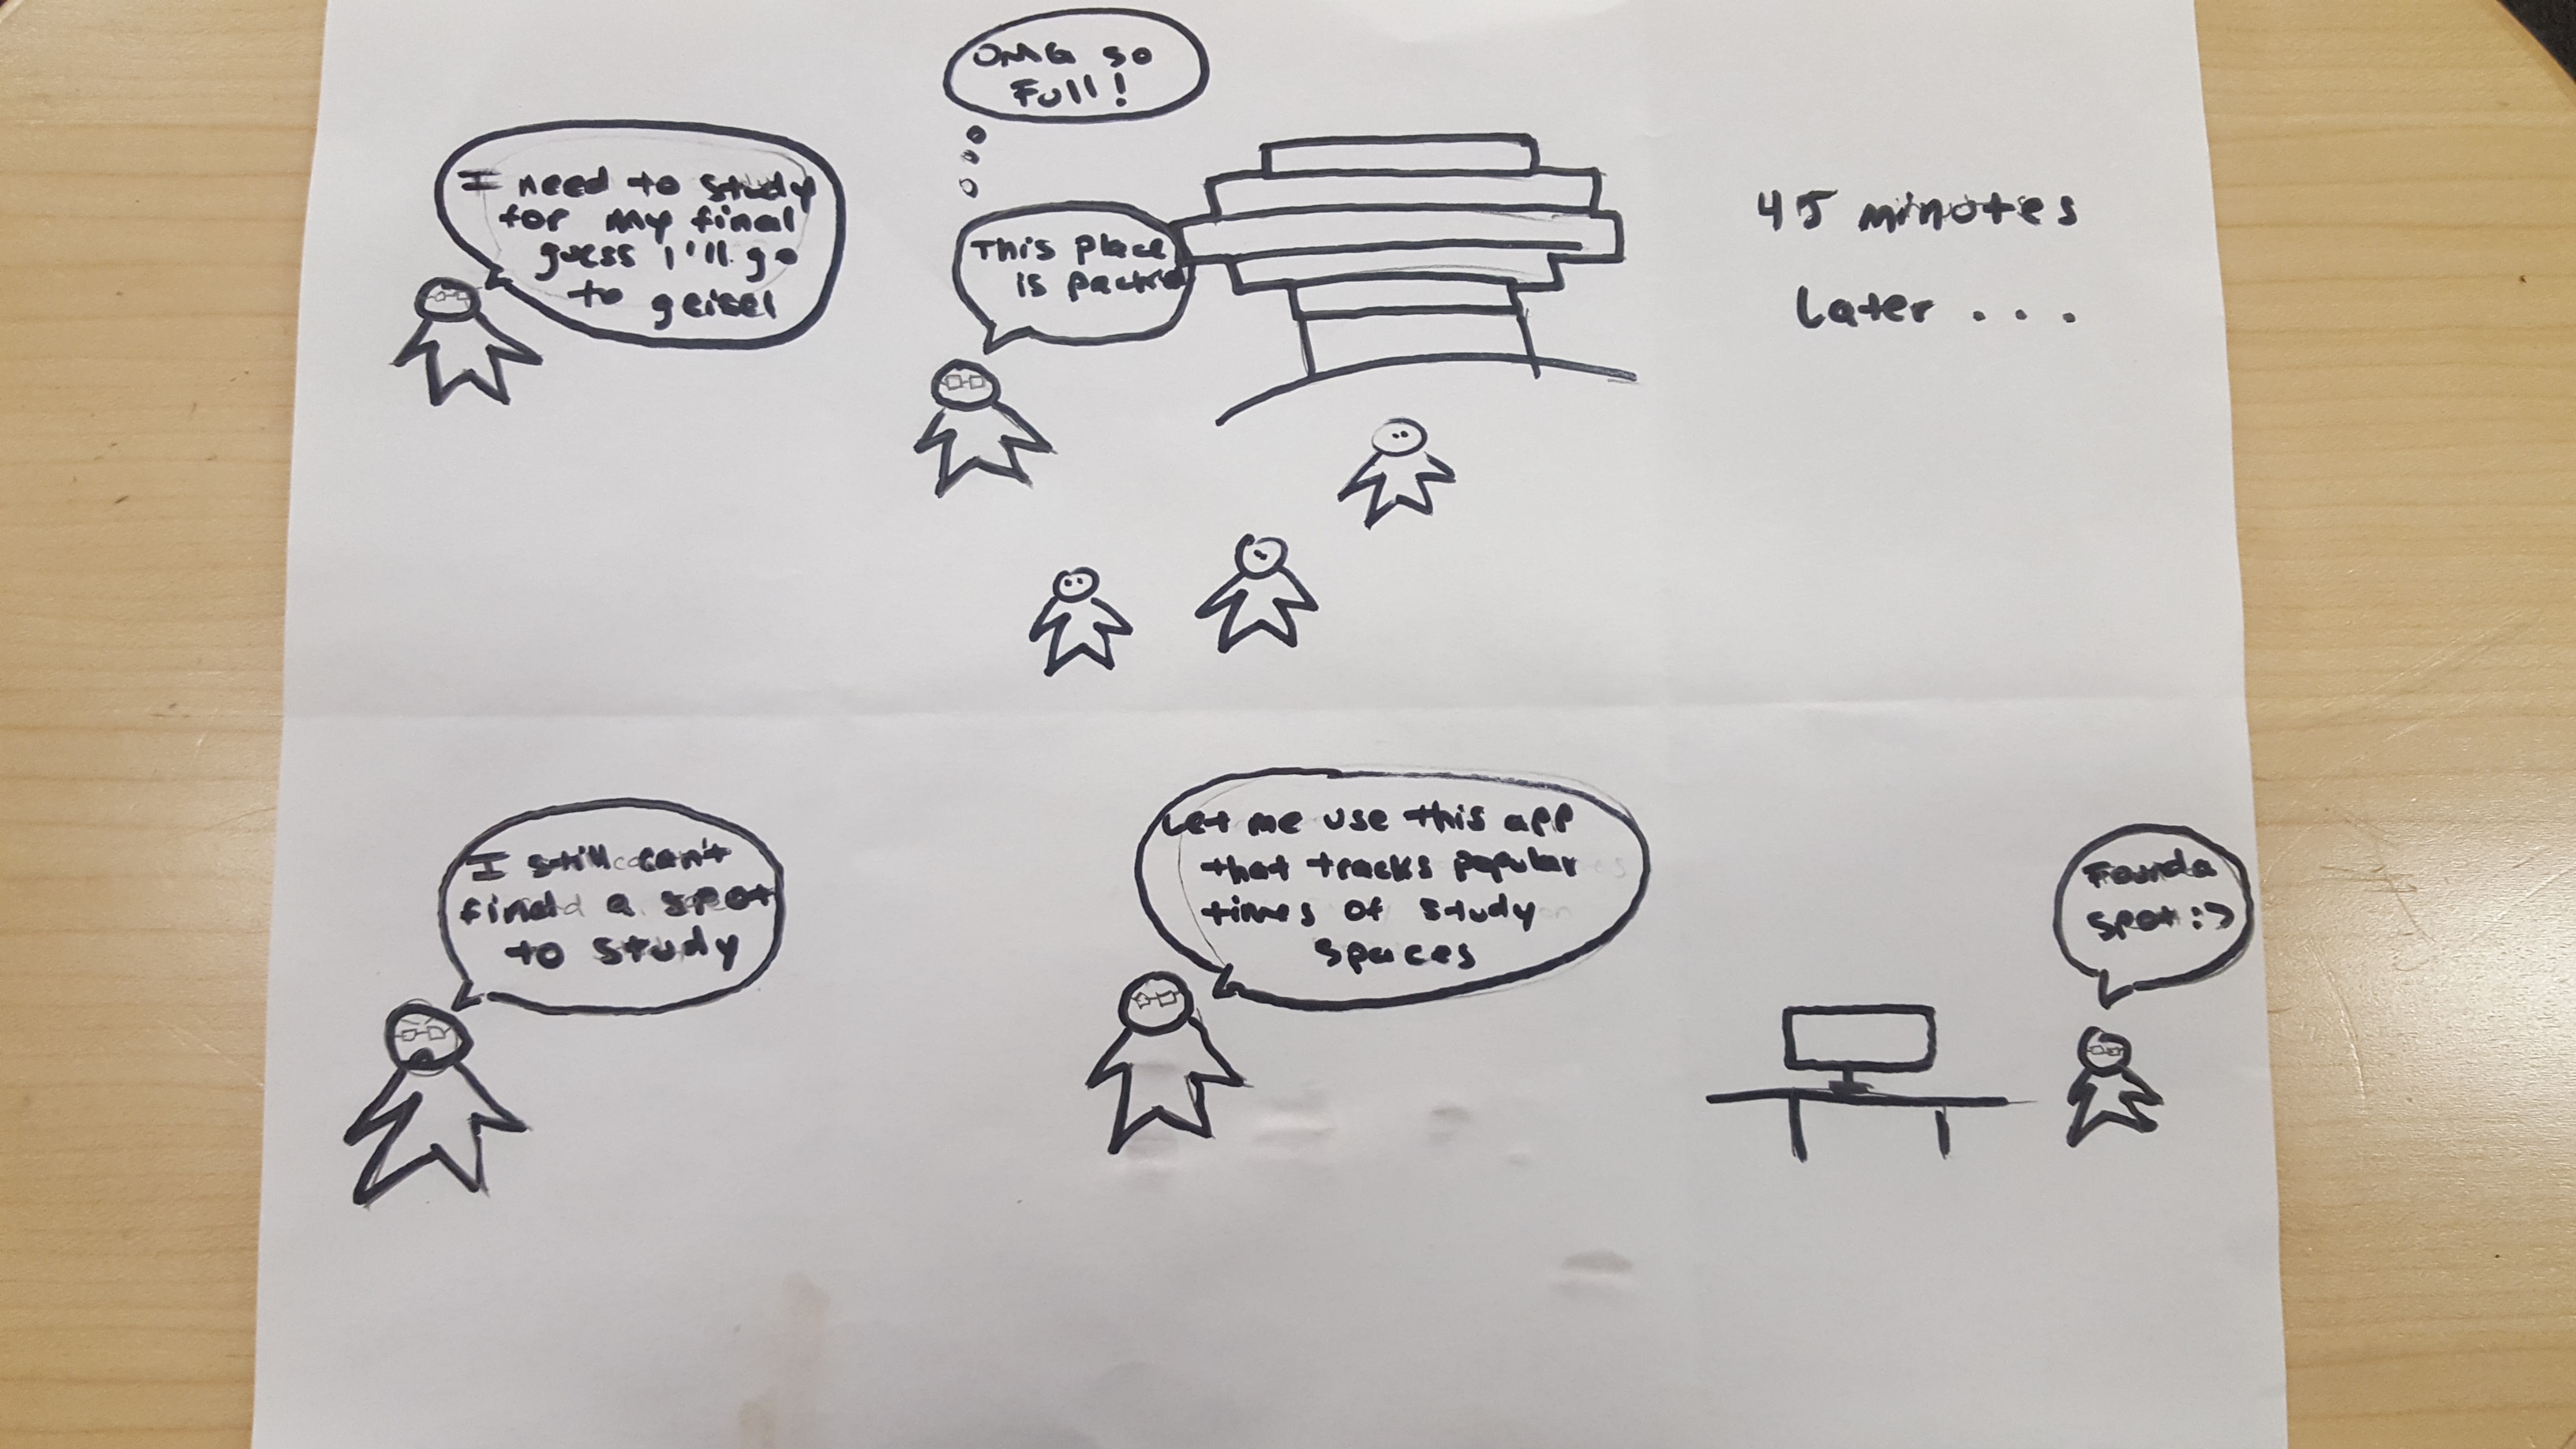 I need to study
for my final
guess I'll go
to geisel
OMG so
Full!
This place
is packed
45 minutes
Later ...
I still can't
find a spot
to study
Let me use this app
that tracks popular
times of study
spaces
Found a
spot :>